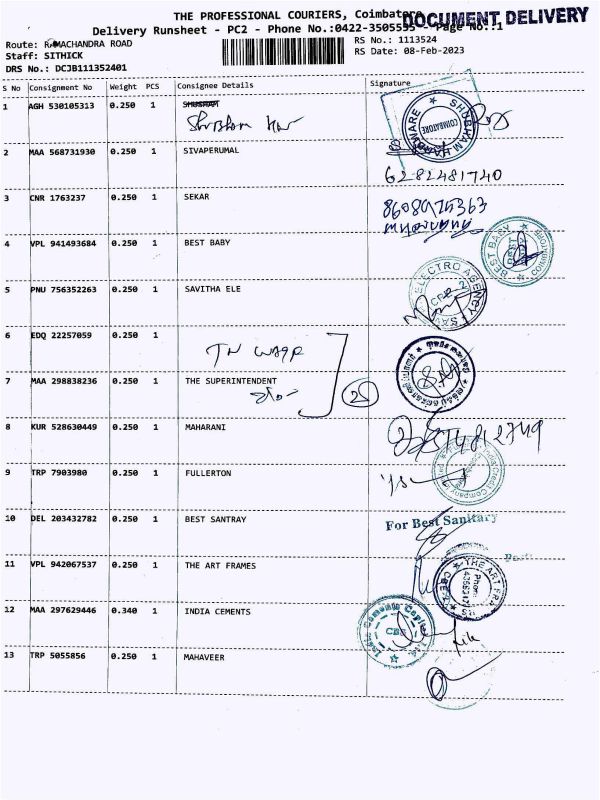 THE PROFESSIONAL COURIERS, Coimbatore
DOCUMENT DELIVERY
Delivery Runsheet - PC2 - Phone No.:0422-3505555 - Page No.:1
Route: RAMACHANDRA ROAD
RS No.: 1113524
Staff: SITHICK
RS Date: 08-Feb-2023
DRS No.: DCJB111352401
S No Consignment No Weight PCS Consignee Details Signature
1 AGH 530105313 0.250 1
SHUBHAM HARDWARE
COIMBATORE
2 MAA 568731930 0.250 1 SIVAPERUMAL
6282481740
3 CNR 1763237 0.250 1 SEKAR
4 VPL 941493684 0.250 1 BEST BABY
BEST BABY
COIMBATORE
5 PNU 756352263 0.250 1 SAVITHA ELE
ELECTRO AGENCY
6 EDQ 22257059 0.250 1
TN
7 MAA 298838236 0.250 1 THE SUPERINTENDENT
25
8 KUR 528630449 0.250 1 MAHARANI
9 TRP 7903980 0.250 1 FULLERTON
India Credit Company
10 DEL 203432782 0.250 1 BEST SANTRAY
For Best Sanitary
11 VPL 942067537 0.250 1 THE ART FRAMES
THE ART FRA
12 MAA 297629446 0.340 1 INDIA CEMENTS
India Cements Capital Ltd.
CBE
13 TRP 5055856 0.250 1 MAHAVEER